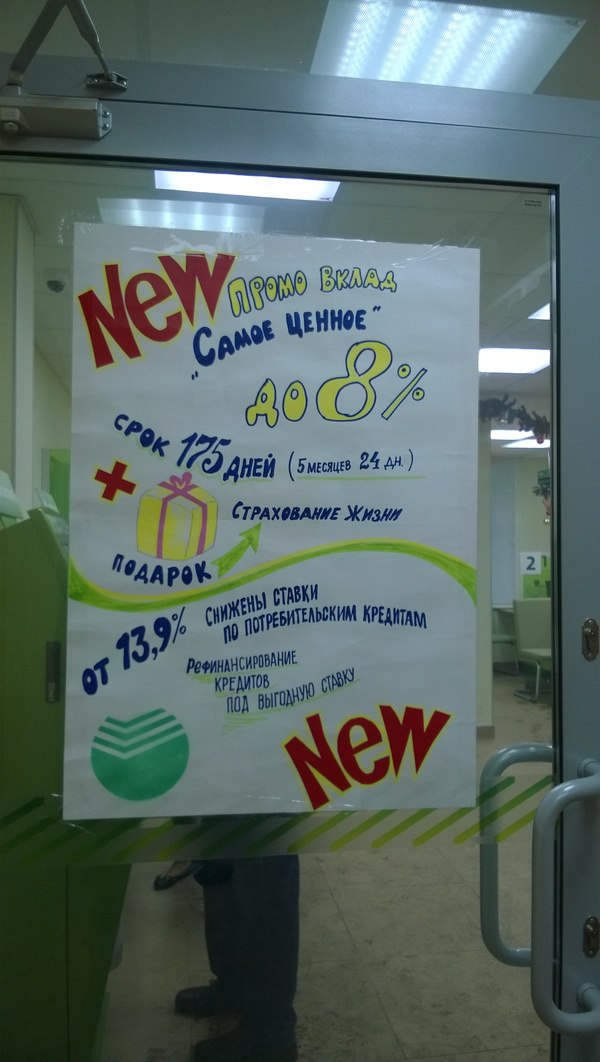 New Промо вклад
"Самое ценное"
до 8%
срок 175 дней (5 месяцев 24 дн.)
+
Страхование жизни
подарок
от 13,9% Снижены ставки
по потребительским кредитам
Рефинансирование
кредитов
под выгодную ставку
New
2